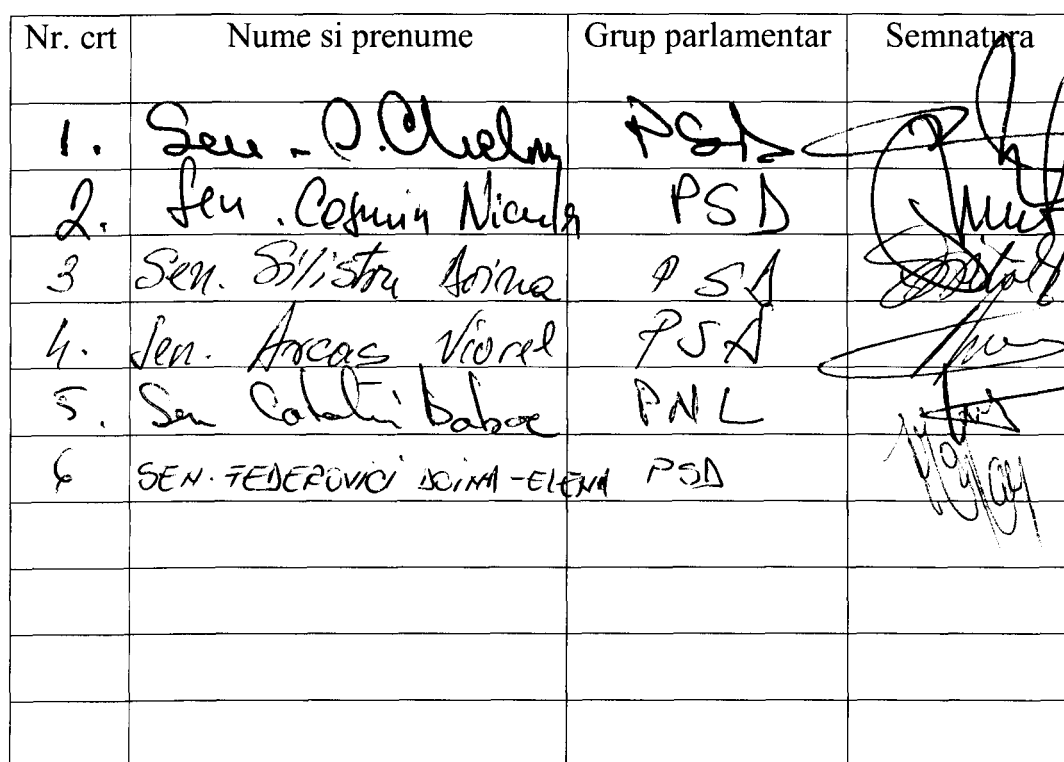 Nr. crt Nume si prenume Grup parlamentar Semnatura
1. Sen. PSD
2. Sen. Cosmin PSD
3 Sen. Silistru Doina PSD
4. Sen. Arcas Viorel PSD
5. Sen Catalin Boboc PNL
6 SEN. FEDEROVICI DOINA-ELENA PSD